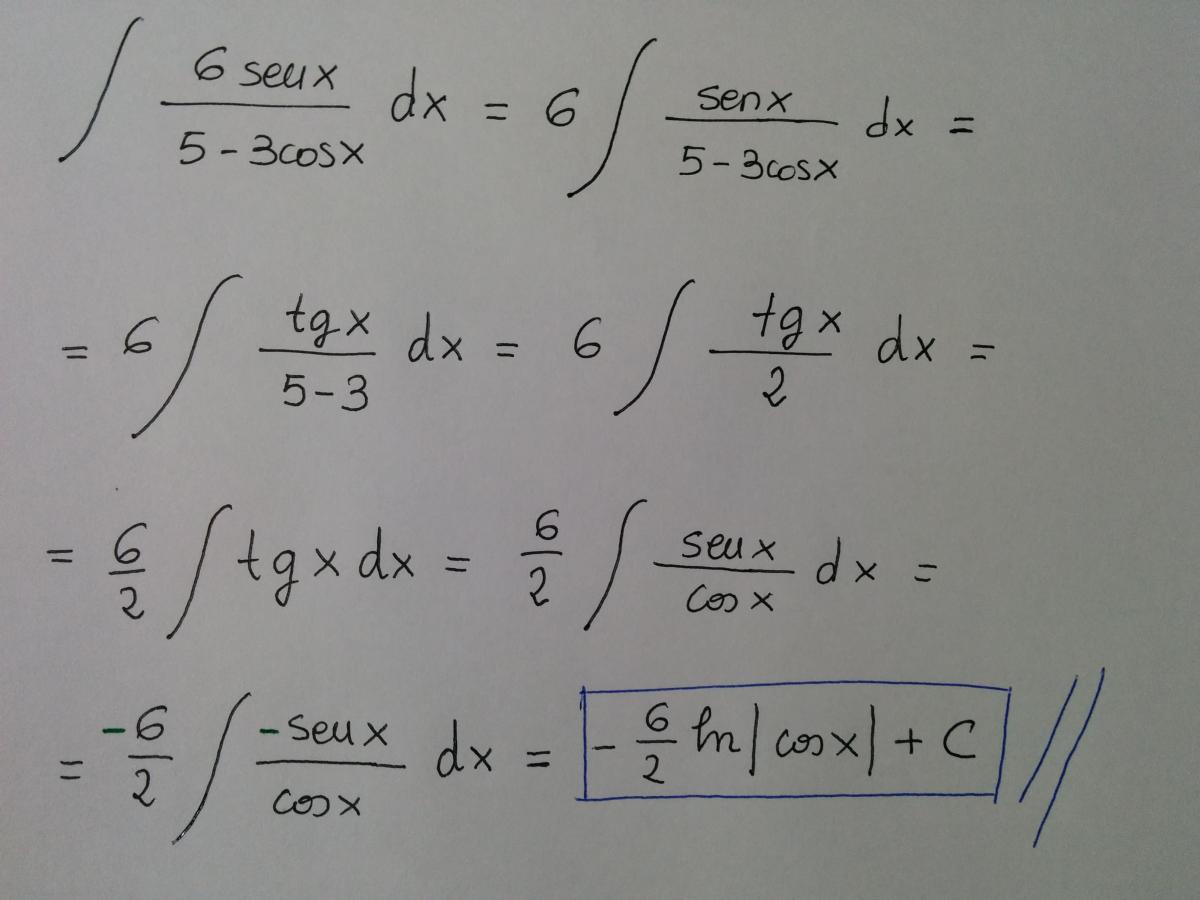 ∫ 6 senx / 5-3cosx dx = 6 ∫ senx / 5-3cosx dx =
= 6 ∫ tgx / 5-3 dx = 6 ∫ tgx / 2 dx =
= 6/2 ∫ tgx dx = 6/2 ∫ senx / cosx dx =
= -6/2 ∫ -senx / cosx dx = -6/2 ln|cosx| + C //